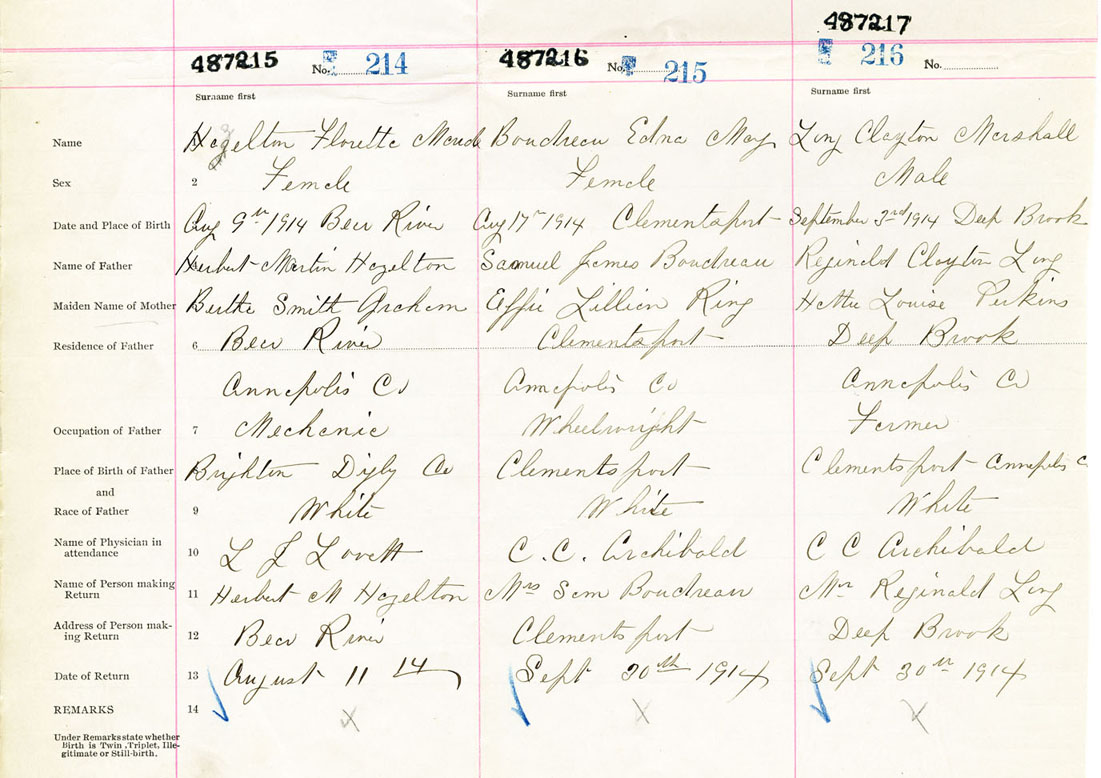 487217
487215 No. 214 487216 No. 215 216 No.
Surname first Surname first Surname first
Name Hazelton Florette Maude Boudreau Edna May Long Clayton Marshall
Sex 2 Female Female Male
Date and Place of Birth Aug 9th 1914 Bear River Aug 17th 1914 Clementsport September 3rd 1914 Deep Brook
Name of Father Herbert Martin Hazelton Samuel James Boudreau Reginald Clayton Long
Maiden Name of Mother Bertha Smith Graham Effie Lillian Ring Hattie Louise Perkins
Residence of Father 6 Bear River Clementsport Deep Brook
Annapolis Co Annapolis Co Annapolis Co
Occupation of Father 7 Mechanic Wheelwright Farmer
Place of Birth of Father Brighton Digby Co Clementsport Clementsport Annapolis C
and
Race of Father 9 White White White
Name of Physician in
attendance 10 L J Lovett C. C. Archibald C C Archibald
Name of Person making
Return 11 Herbert M Hazelton Mrs Sam Boudreau Mr Reginald Long
Address of Person mak-
ing Return 12 Bear River Clementsport Deep Brook
Date of Return 13 August 11 14 Sept 30th 1914 Sept 30th 1914
REMARKS 14 x x x
Under Remarks state whether
Birth is Twin, Triplet, Ille-
gitimate or Still-birth.